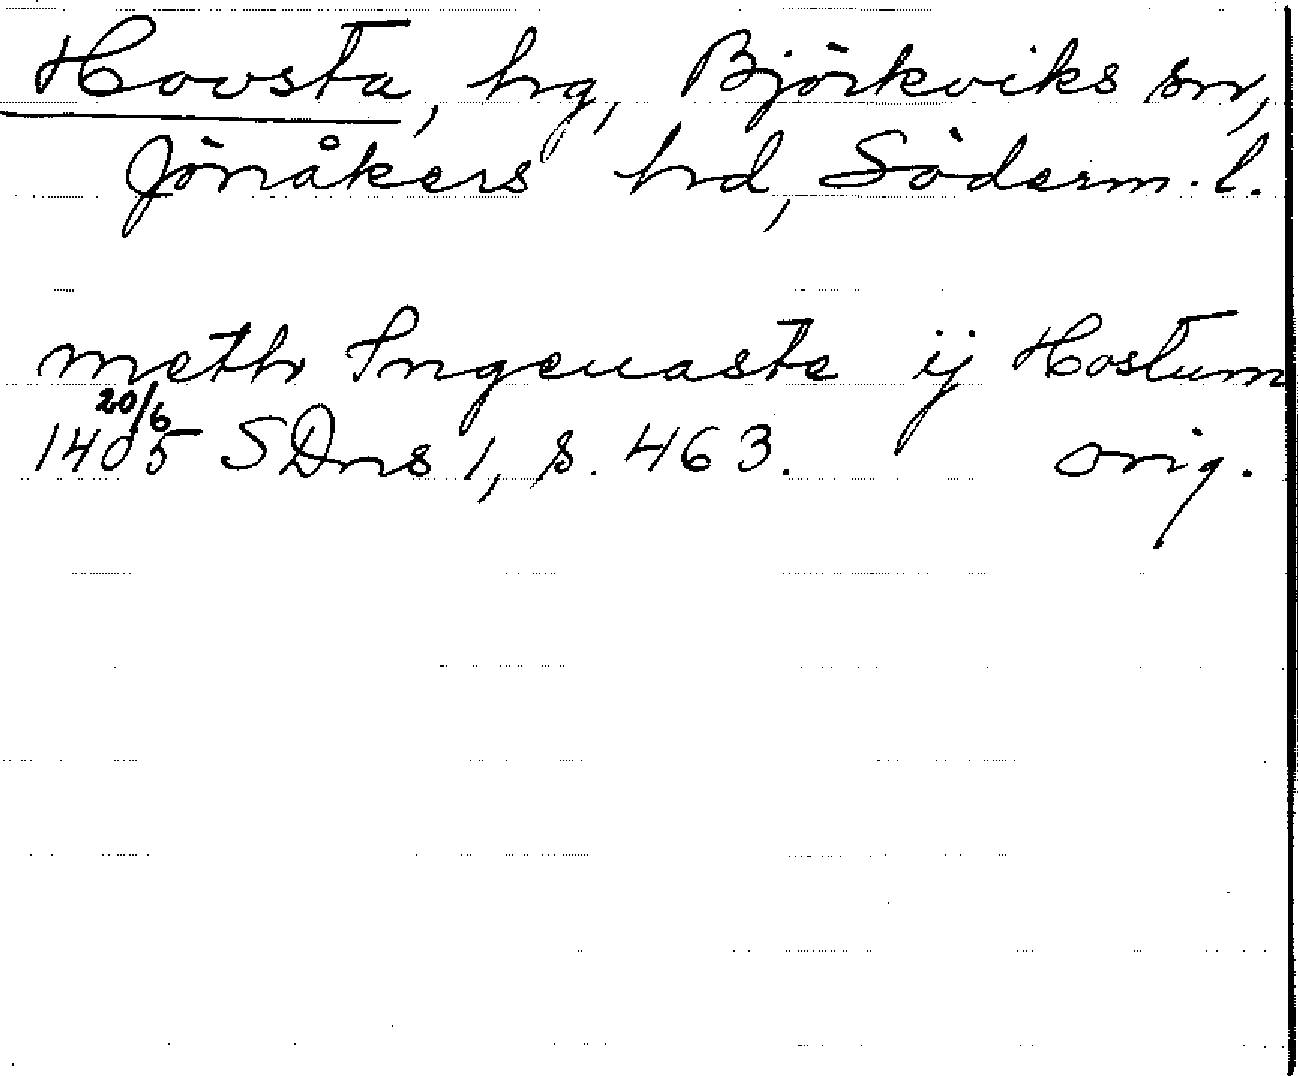 Hovsta, hg, Björkviks sn,
Jönåkers hd, Söderm. l.
meth Ingeuaste ij Hostum
20/6
1405 SDns 1, s. 463. orig.